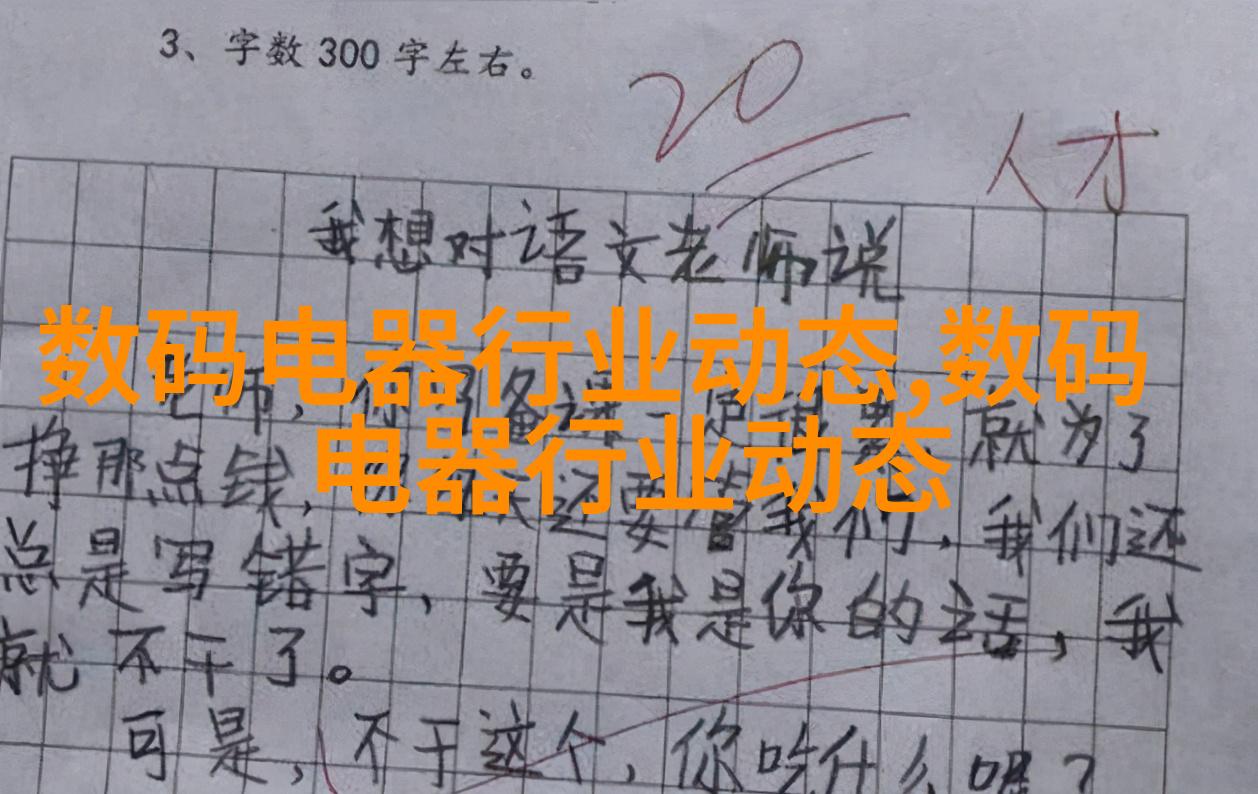 3、字数300字左右。
20
人才
我想对语文老师说
数码电器行业动态,数码
老师,你备课一定很累,就为了
电器行业动态
挣那点钱,还要管我们,我们还
总是写错字,要是我是你的话,我
就不干了。
可是,不干这个,你吃什么呢?